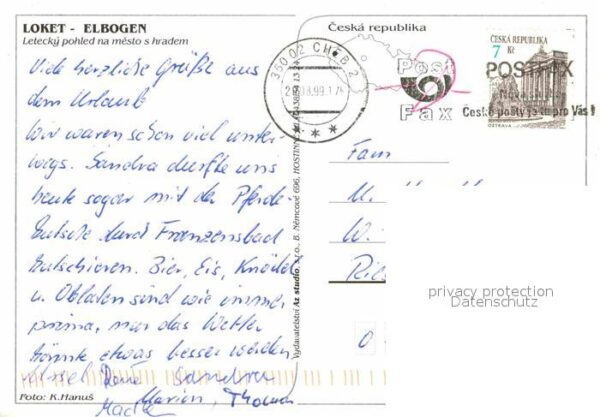 LOKET - ELBOGEN
Letecký pohled na město s hradem
Viele herzliche Grüße aus
dem Urlaub
Wir waren schon viel unter-
wegs. Sandra durfte uns
heute sogar mit der Pferde-
kutsche durch Franzensbad
kutschieren. Bier, Eis, Knödel
u. Oblaten sind wie immer
prima, nur das Wetter
könnte etwas besser werden.
Sandra
Marion, Thomas
Foto: K.Hanuš
Vydavatelství Az studio, s.r.o., B. Němcové 696, HOSTINNÉ
Česká republika
350 02 CHEB 2
Post
Fax
ČESKÁ REPUBLIKA
7 Kč
POSTFAX
České pošty je tu pro Vás!
OSTRAVA
Fam
privacy protection
Datenschutz